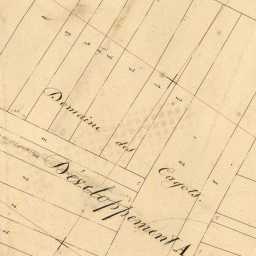 Domaine des Cagots.
Développement A